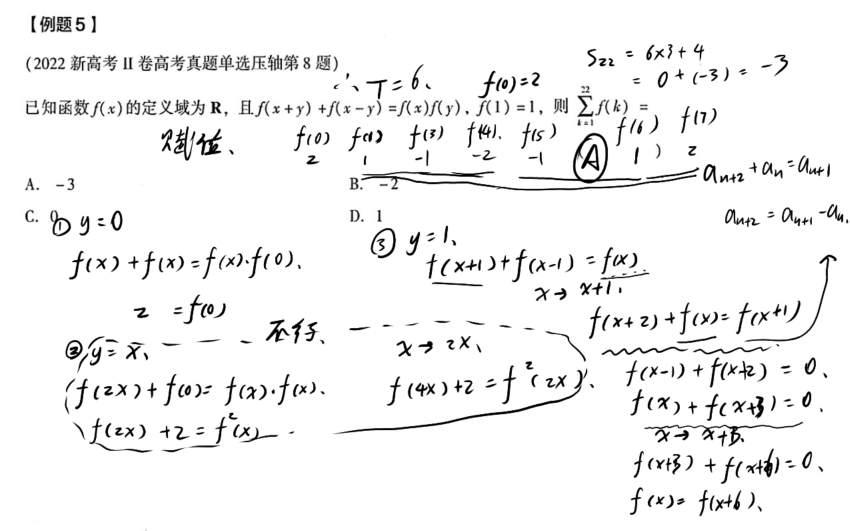 【例题5】
(2022 新高考 II 卷高考真题单选压轴第 8 题)
∴ T=6、 f(0)=2
S₂₂ = 6×3+4
= 0+(-3) = -3
已知函数 f(x) 的定义域为 R，且 f(x+y)+f(x-y)=f(x)f(y)，f(1)=1，则 \sum_{k=1}^{22} f(k) =
赋值、 f(0) f(1) f(3) f(4) f(5) (A) f(6) f(7)
2 1 -1 -2 -1 1 ) 2
A. -3
B. -2
C. 0
D. 1
aₙ₊₂+aₙ=aₙ₊₁
aₙ₊₂=aₙ₊₁-aₙ.
① y=0
f(x)+f(x)=f(x)·f(0)、
2 =f(0)
② y=x、 不行、
f(2x)+f(0)=f(x)·f(x).
f(2x)+2=f²(x)
x→2x、
f(4x)+2=f²(2x)、
③ y=1、
f(x+1)+f(x-1)=f(x)
x→x+1、
f(x+2)+f(x)=f(x+1)
f(x-1)+f(x+2)=0、
f(x)+f(x+3)=0.
x→x+3.
f(x+3)+f(x+6)=0、
f(x)=f(x+6)、